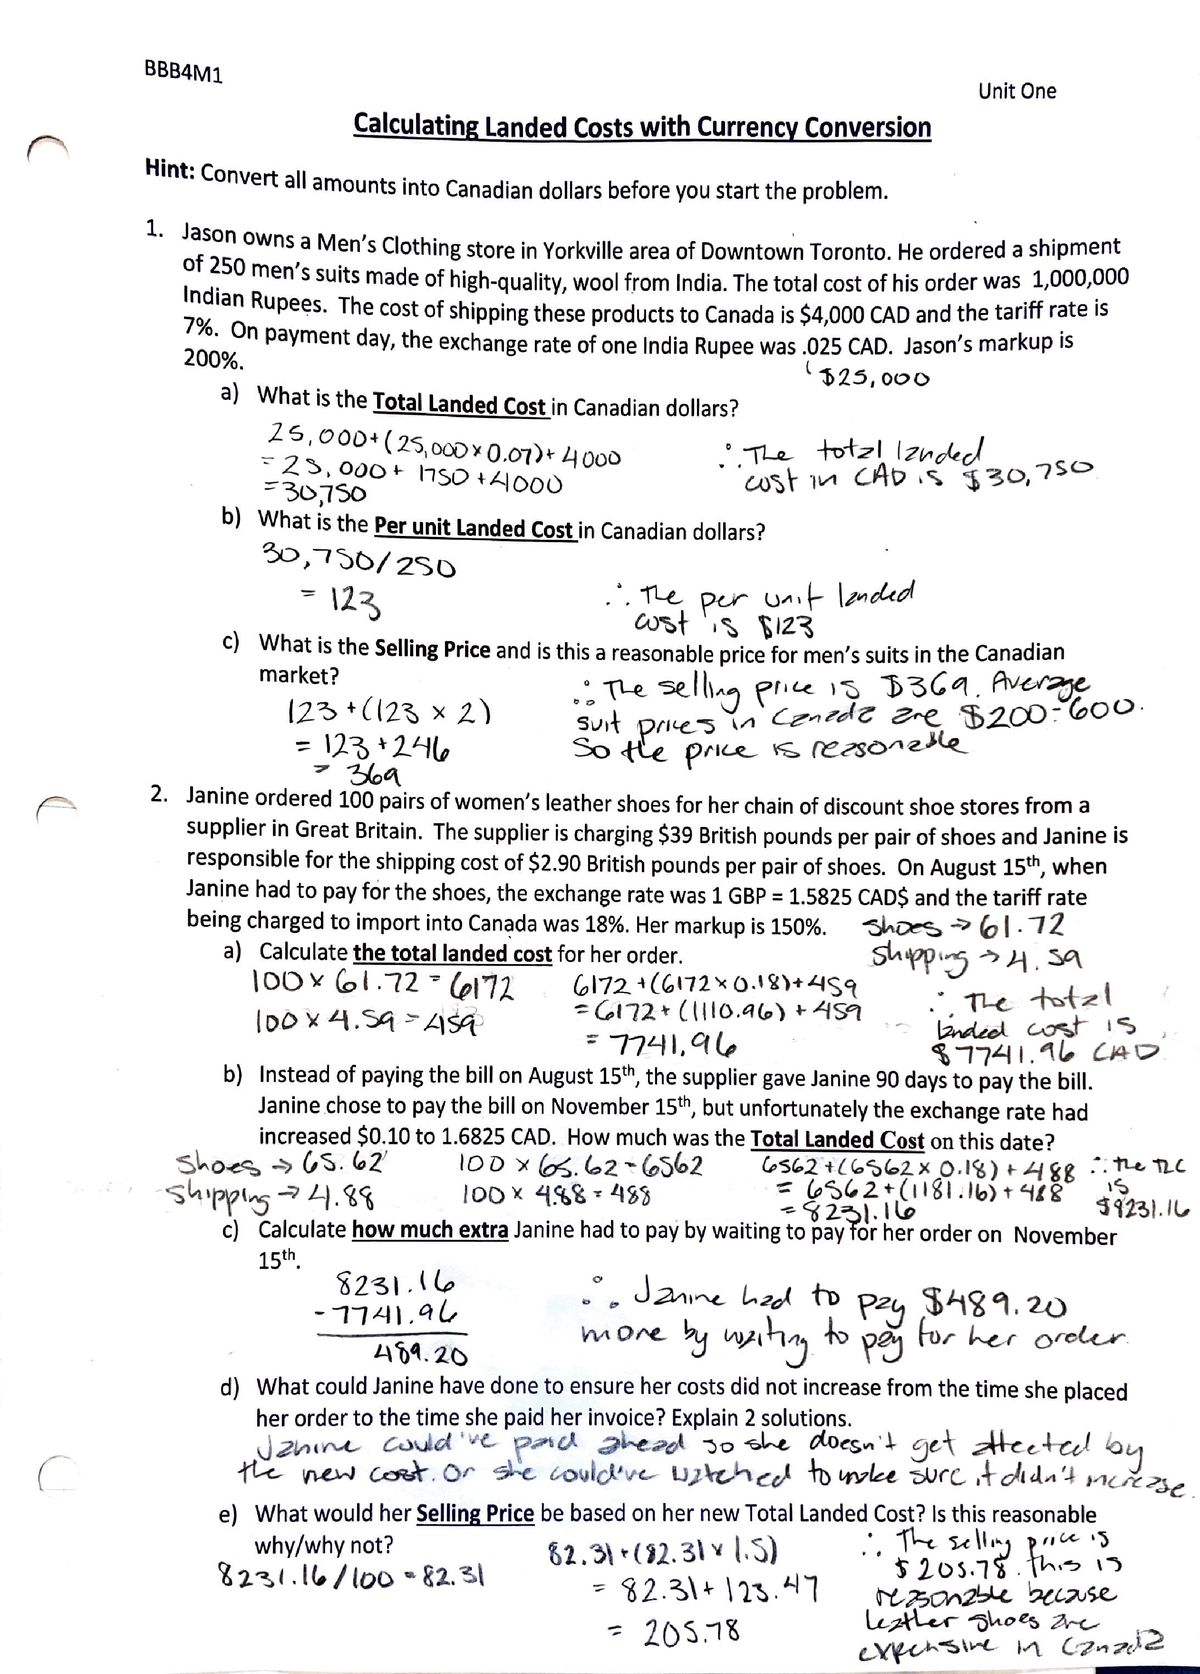 BBB4M1
Unit One
Calculating Landed Costs with Currency Conversion
Hint: Convert all amounts into Canadian dollars before you start the problem.
1. Jason owns a Men's Clothing store in Yorkville area of Downtown Toronto. He ordered a shipment
of 250 men's suits made of high-quality, wool from India. The total cost of his order was 1,000,000
Indian Rupees. The cost of shipping these products to Canada is $4,000 CAD and the tariff rate is
7%. On payment day, the exchange rate of one India Rupee was .025 CAD. Jason's markup is
200%.
$25,000
a) What is the Total Landed Cost in Canadian dollars?
25,000+(25,000×0.07)+4000
=25,000+1750+4000
=30,750
∴ The total landed
cost in CAD is $30,750
b) What is the Per unit Landed Cost in Canadian dollars?
30,750/250
= 123
∴ The per unit landed
cost is $123
c) What is the Selling Price and is this a reasonable price for men's suits in the Canadian
market?
123+(123 × 2)
= 123+246
= 369
∴ The selling price is $369. Average
suit prices in Canada are $200-600.
So the price is reasonable
2. Janine ordered 100 pairs of women's leather shoes for her chain of discount shoe stores from a
supplier in Great Britain. The supplier is charging $39 British pounds per pair of shoes and Janine is
responsible for the shipping cost of $2.90 British pounds per pair of shoes. On August 15th, when
Janine had to pay for the shoes, the exchange rate was 1 GBP = 1.5825 CAD$ and the tariff rate
being charged to import into Canada was 18%. Her markup is 150%.
shoes → 61.72
shipping → 4.59
a) Calculate the total landed cost for her order.
100 × 61.72 = 6172
100 × 4.59 = 459
6172+(6172×0.18)+459
=6172+(1110.96)+459
= 7741.96
∴ The total
landed cost is
$7741.96 CAD
b) Instead of paying the bill on August 15th, the supplier gave Janine 90 days to pay the bill.
Janine chose to pay the bill on November 15th, but unfortunately the exchange rate had
increased $0.10 to 1.6825 CAD. How much was the Total Landed Cost on this date?
Shoes → 65.62
Shipping → 4.88
100 × 65.62=6562
100 × 4.88=488
6562+(6562×0.18)+488
= 6562+(1181.16)+488
=8231.16
∴ the TLC
is
$9231.16
c) Calculate how much extra Janine had to pay by waiting to pay for her order on November
15th.
8231.16
-7741.96
489.20
∴ Janine had to pay $489.20
more by waiting to pay for her order.
d) What could Janine have done to ensure her costs did not increase from the time she placed
her order to the time she paid her invoice? Explain 2 solutions.
Janine could've paid ahead so she doesn't get affected by
the new cost. Or she could've watched to make sure it didn't increase.
e) What would her Selling Price be based on her new Total Landed Cost? Is this reasonable
why/why not?
8231.16/100=82.31
82.31+(82.31×1.5)
= 82.31+123.47
= 205.78
∴ The selling price is
$205.78. this is
reasonable because
leather shoes are
expensive in Canada